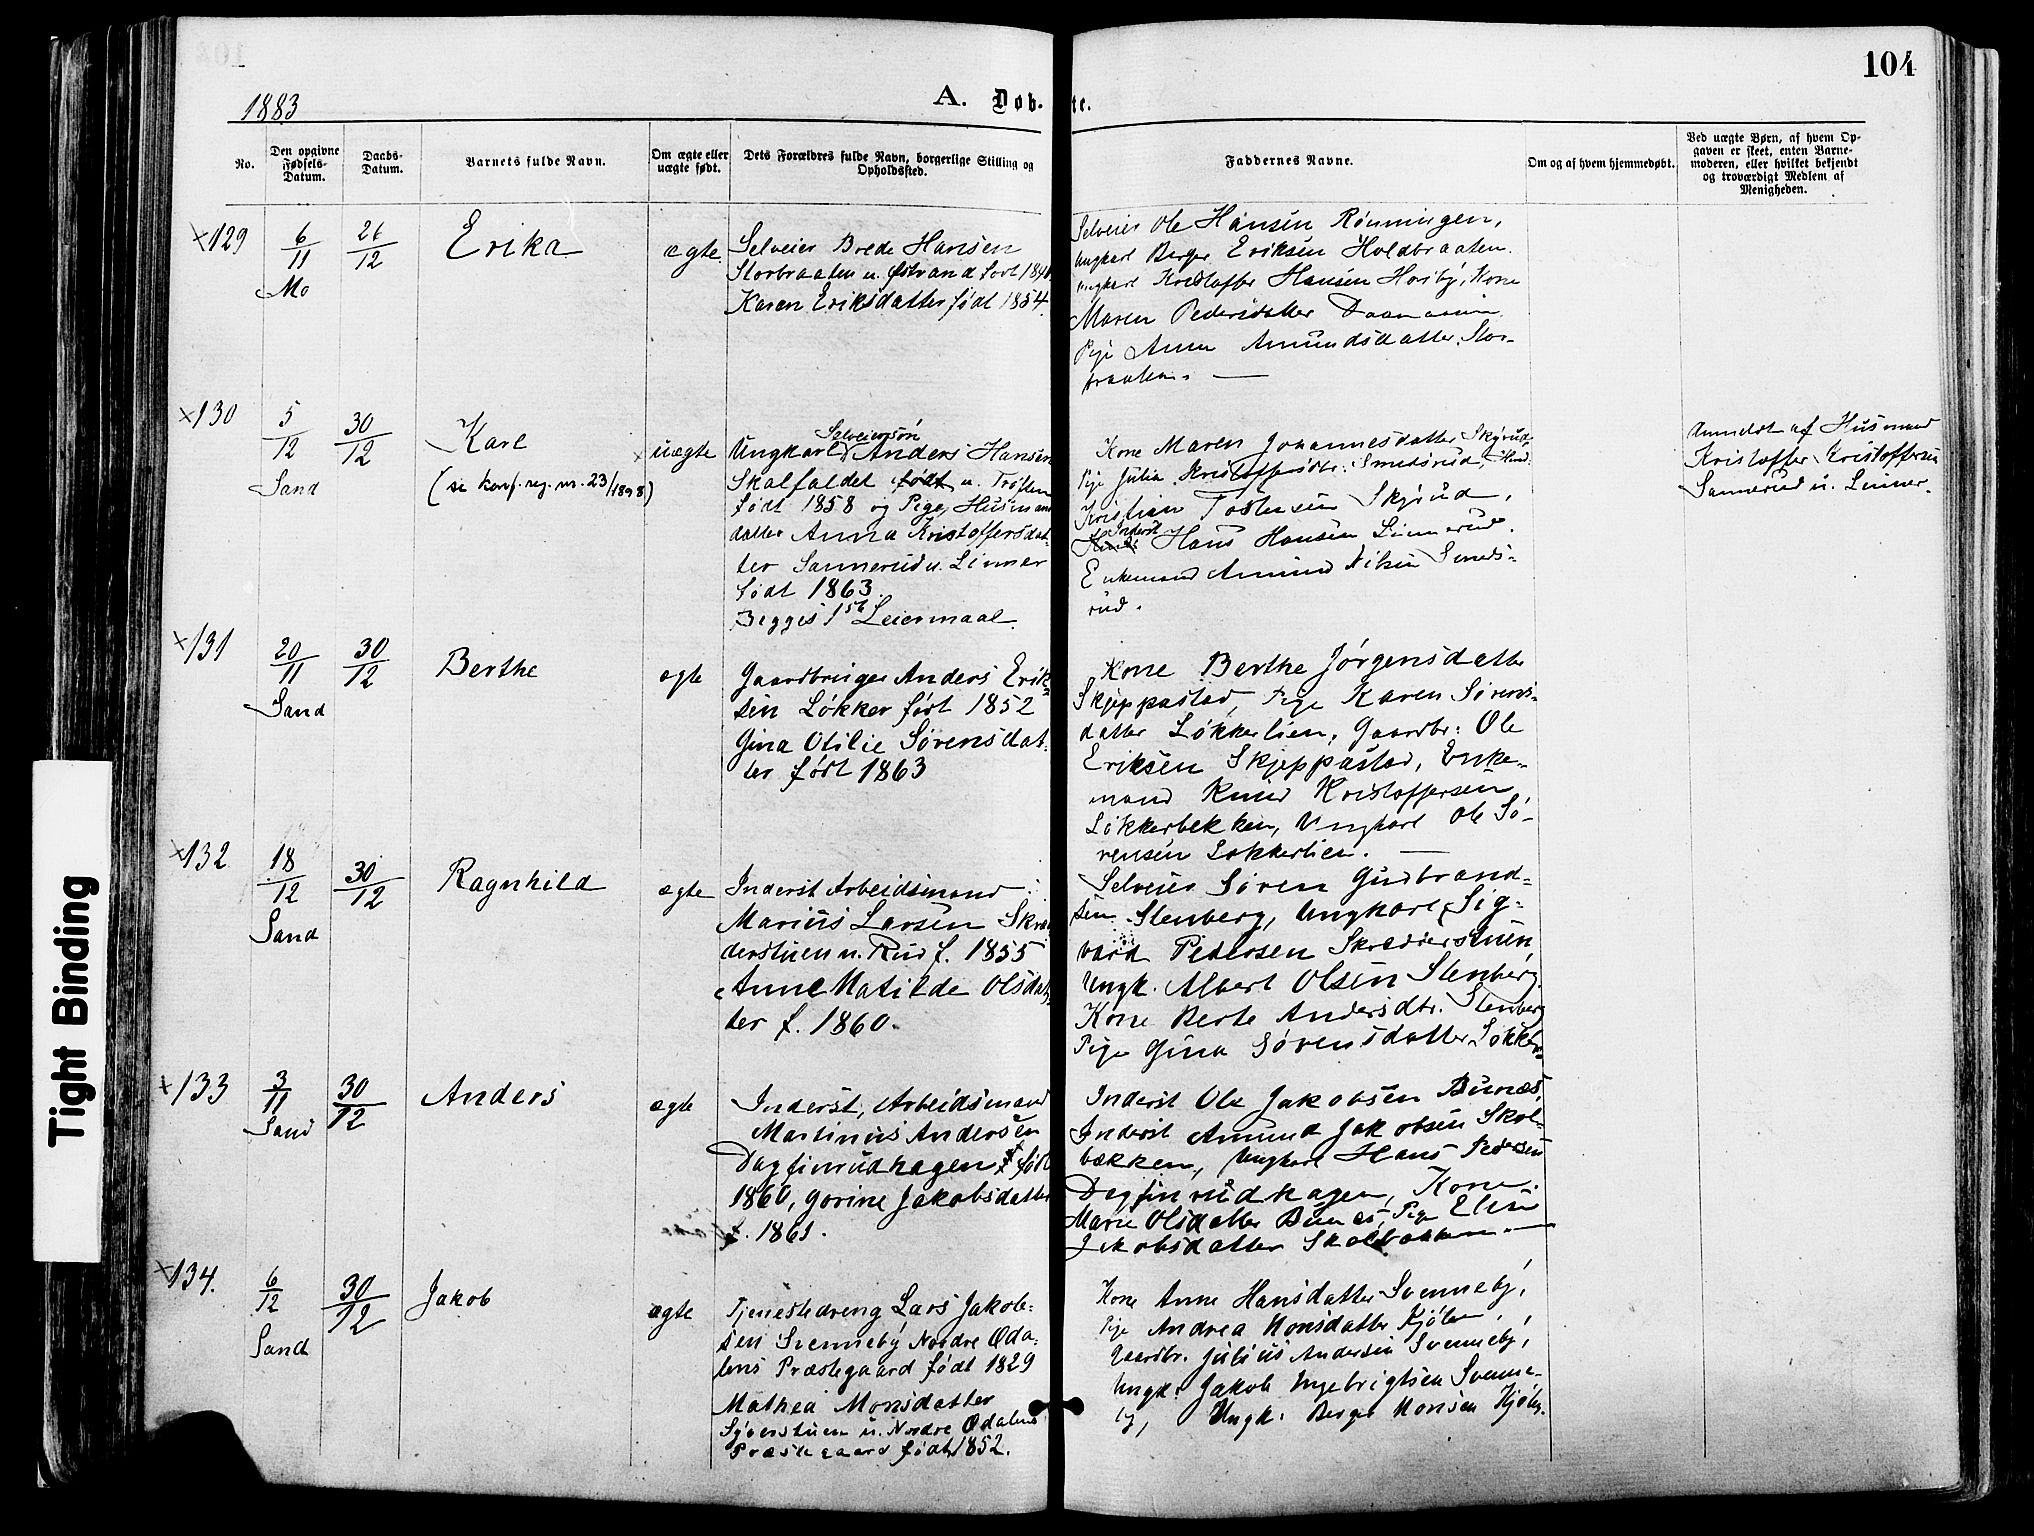 104
1883
A. Døb-
te.
No.
Den opgivne Fødsels-Datum.
Daabs-Datum.
Barnets fulde Navn.
Om ægte eller uægte født.
Dets Forældres fulde Navn, borgerlige Stilling og Opholdssted.
Faddernes Navne.
Om og af hvem hjemmedøbt.
Ved uægte Børn, af hvem Op-
gaven er skeet, enten Barne-
moderen, eller hvilket bekjendt
og troværdigt Medlem af
Menigheden.
×129
6/11
Mo
26/12
Erika
ægte
Selveier Brede Hansen
Storbraaten u. Østvand født
Karen Eriksdatter født 1854.
Selveier Ole Hansen Rønningen,
Ungkarl Berger Eriksen Holdbraaten
Ungkarl Kristoffer Hansen Horby, Kone
Maren Pedersdatter
Pige Anna Amundsdatter Stor-
braaten. —
×130
5/12
Sand
30/12
Karl
(se konf. reg. nr. 23/1898)
× uægte
Selveiersøn
Ungkarl Anders Hansen
Skalfaldet født u. Trøften
født 1858 og Pige, Husmands
datter Anna Kristoffersdat-
ter Sannerud u. Linner
født 1863.
Begges 1ste Leiermaal.
Kone Maren Johannesdatter Skyrud
Pige Julia Kristoffersdtr. Smedsrud,
Kristian Tostensen Skyrud,
Inderst
Hans Hansen Linnerud.
Enkemand Amund Nilsen Smeds-
rud.
Anmeldt af Husmand
Kristoffer Kristoffersen
Sannerud u. Linner.
×131
20/11
Sand
30/12
Berthe
ægte
Gaardbruger Anders Erik-
sen Løkker født 1852
Gina Otilie Sørensdat-
ter født 1863
Kone Berthe Jørgensdatter
Skjeppastad, Pige Karen Sørens-
datter Løkkerlien, Gaardbr: Ole
Eriksen Skjeppastad, Enke-
mand Knud Kristoffersen
Løkkerbekken, Ungkarl Ole Sø-
rensen Løkkerlien. —
×132
18/12
Sand
30/12
Ragnhild
ægte
Inderst Arbeidsmand
Marius Larsen Skræ
derstuen u. Rud f. 1855
Anne Matilde Olsdat-
ter f. 1860.
Selveier Søren Gudbrand-
sen Stenberg, Ungkarl Sig-
vard Pedersen Skrædderstuen,
Ungk. Albert Olsen Stenberg.
Kone Berte Andersdtr. Stenberg
Pige Gina Sørensdatter Løkker
×133
3/11
Sand
30/12
Anders
ægte
Inderst, Arbeidsmand
Martinus Andersen
Dagfinrudhagen født
1860, Gorine Jakobsdatter
f. 1861.
Inderst Ole Jakobsen Bunæs,
Inderst Amund Jakobsen Skol-
bækken, Ungkarl Hans Pedersen
Dagfinrudhagen, Kone
Marie Olsdatter Bunæs, Pige Elise
Jakobsdatter Skolbækken —
×134.
6/12
Sand
30/12
Jakob
ægte
Tjenestedreng Lars Jakob-
sen Svenneby Nordre Oda-
lens Præstegaard født 1829
Mathea Monsdatter
Syverstuen u. Nordre Odalens
Præstegaard født 1852.
Kone Anne Hansdatter Svenneby,
Pige Andrea Monsdatter Kjølen,
Gaardbr. Julius Andersen Svenneby,
Ungk: Jakob Ingebrigtsen Svenne-
by, Ungk: Berger Monsen Kjølen.
Tight Binding